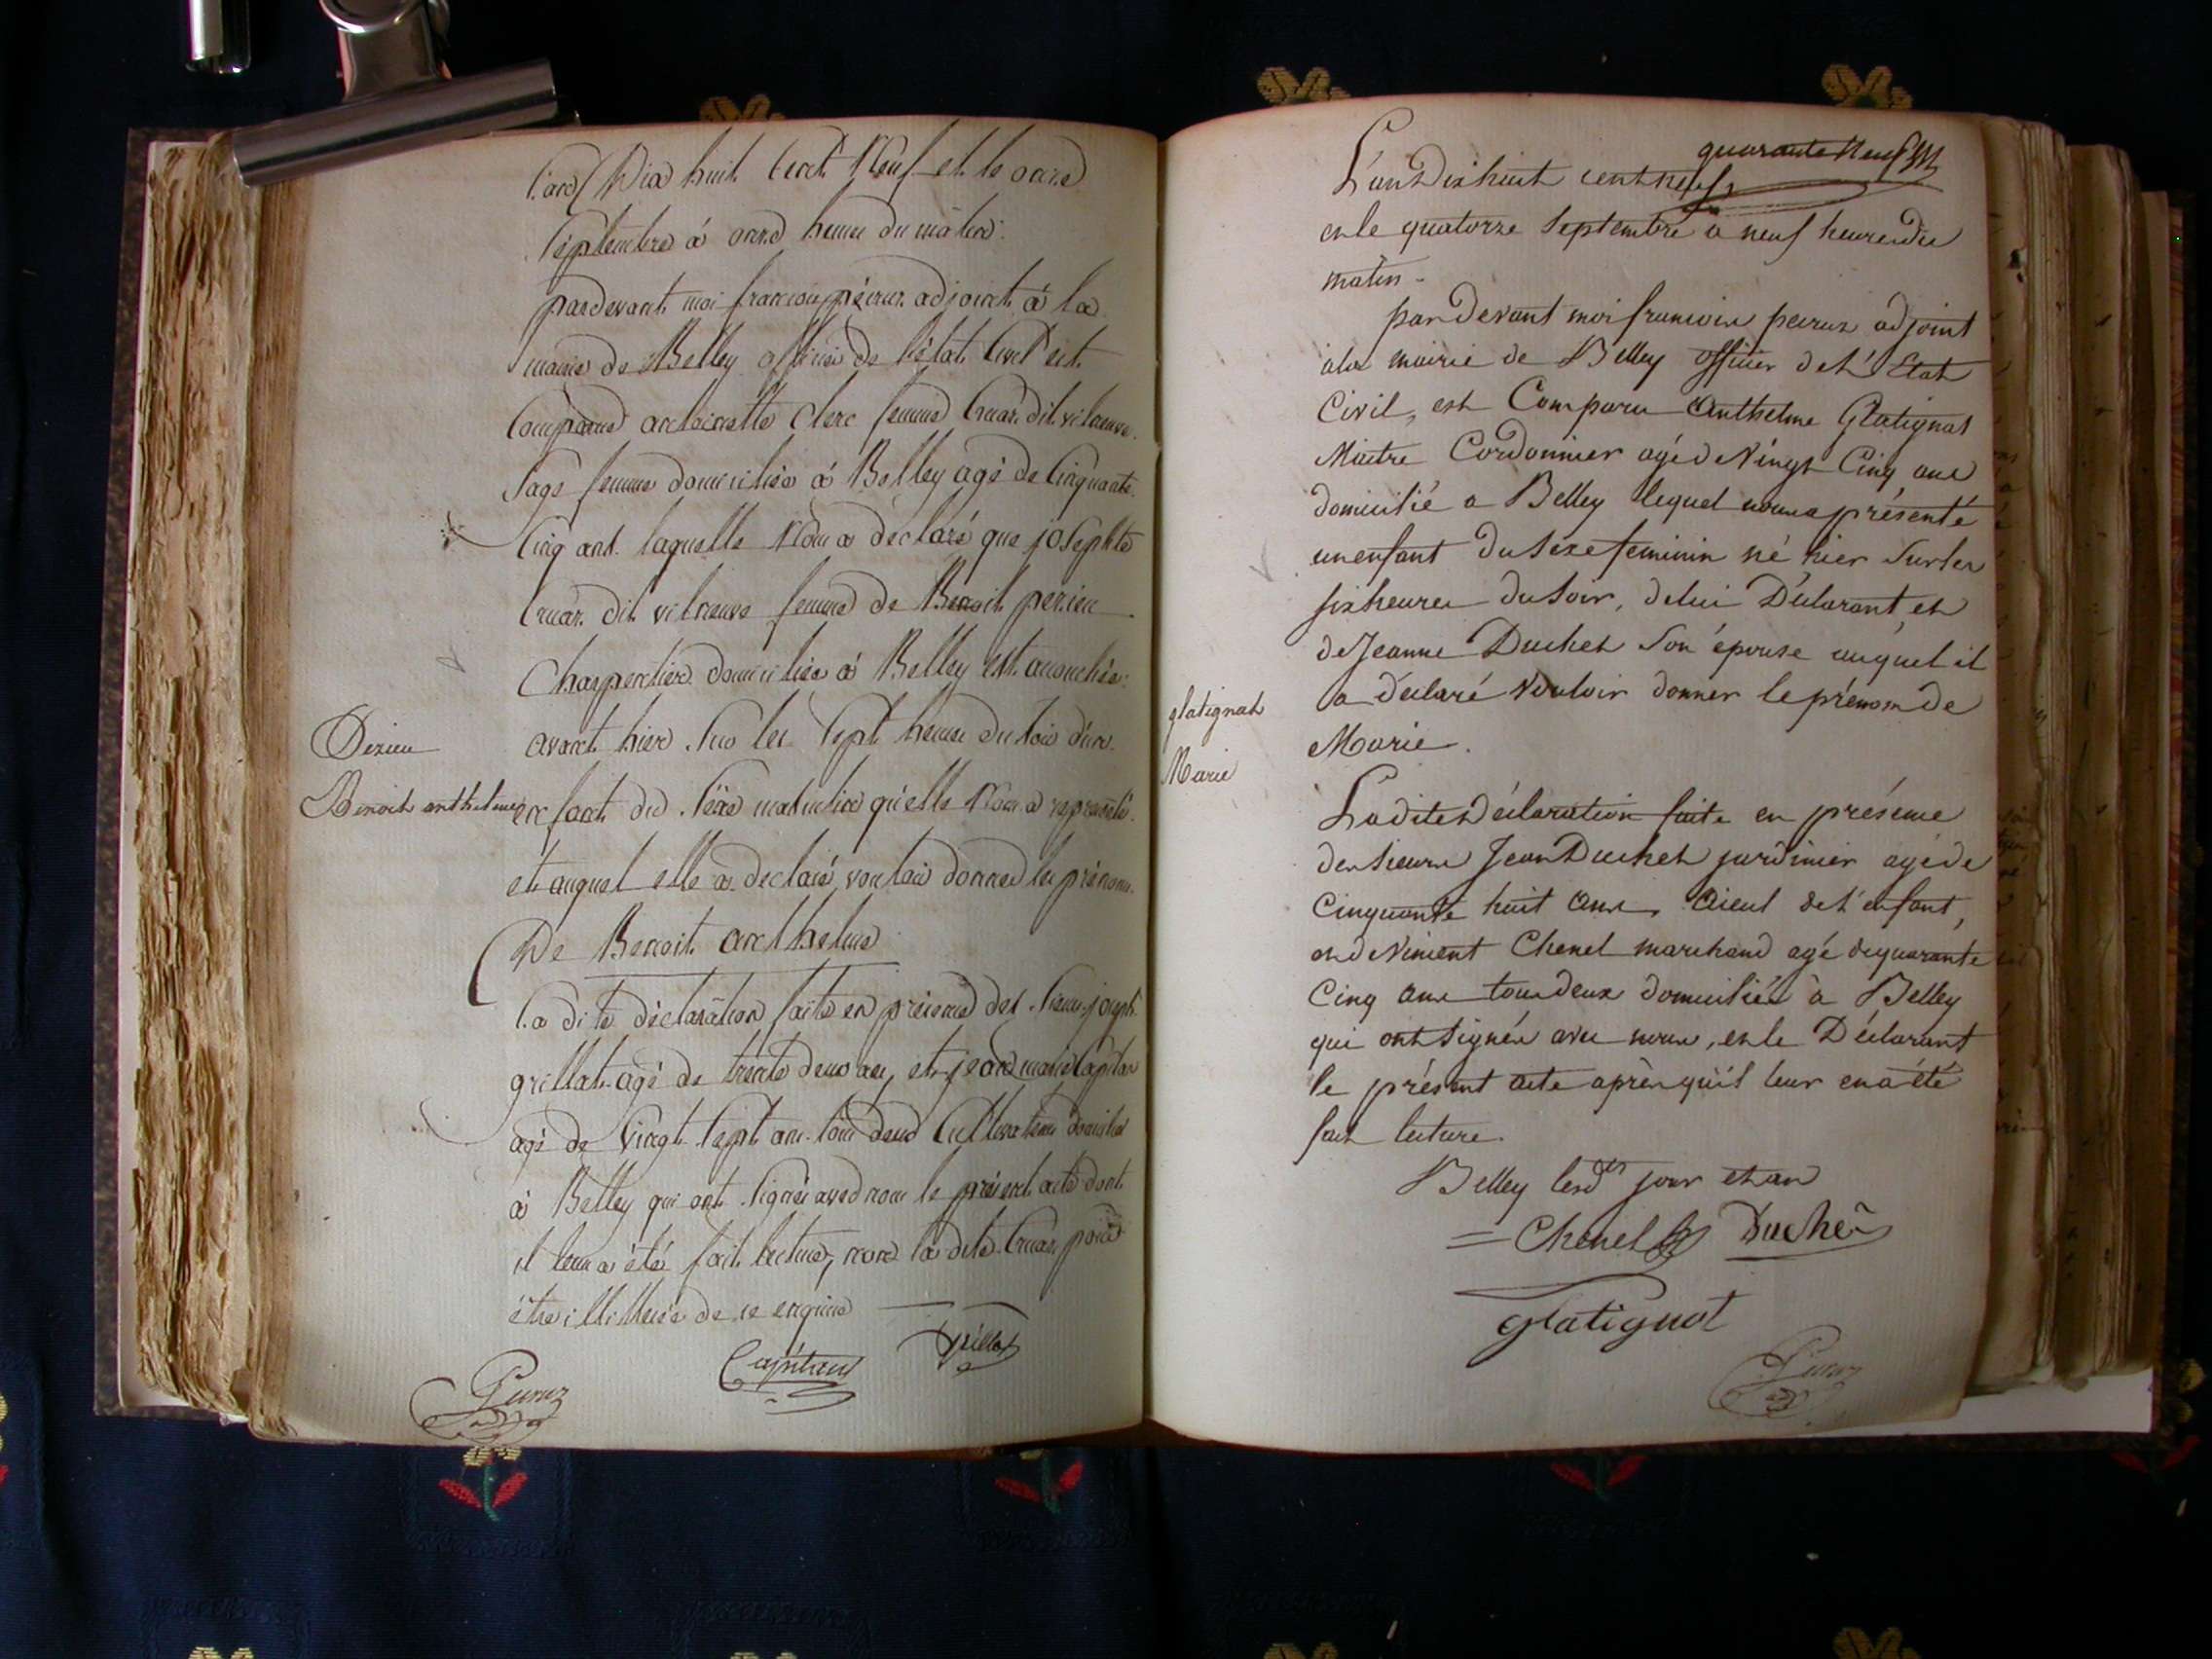 L'an Dix huit Cent Neuf et le onze
Septembre à onze heures du matin.
pardevant moi francois peiruz adjoint à la
mairie de Belley officier de l'état Civil est
Comparue anthoinette Clerc femme Cruaz dit vilneuve
Sage femme domiciliée à Belley agé de Cinquante
Cinq ans laquelle Nous a declaré que josephte
Cruaz dit vilneuve femme de Benoit
Charpentier domiciliée à Belley est accouchée
avant hier Sur les Sept heures du soir d'un
Benoit anthelme
enfant du Sexe masculin qu'elle Nous a representé
et auquel elle a declaré vouloir donner les prénoms
De Benoit anthelme
La dite déclaration faite en présence des Sieurs joseph
grillat agé de trente deux ans, et jean marie Capitan
agé de Vingt Sept ans tous deux Cultivateurs domiciliés
à Belley qui ont Signés avec nous le présent acte dont
il leur a été fait lecture, non la dite Cruaz pour
être illitterée de ce enquise
Peiruz
Capitan
Grillat
quarante Neuf
L'an Dix huit cent neuf
et le quatorze Septembre a neuf heures du
matin -
par Devant moi francois peiruz adjoint
à la mairie de Belley officier de l'Etat
Civil, est Comparu Anthelme Glatignat
Maitre Cordonnier agé de Vingt Cinq ans
domicilié a Belley lequel nous a présenté
un enfant du Sexe feminin né hier Sur les
six heures du Soir, de lui Déclarant, et
de Jeanne Duchet Son épouse auquel il
a déclaré Vouloir donner le prénom de
Marie.
glatignat
Marie
La dite Déclaration faite en présence
des Sieurs Jean Duchet jardinier agé de
Cinquante huit ans, Aieul de l'enfant,
et de Vincent Chenel marchand agé de quarante
Cinq ans tous deux domiciliés à Belley
qui ont Signés avec nous, et le Déclarant
le présent acte après qu'il leur en a été
fait lecture.
Belley lesdts jour et an
Chenel Duchet
glatignot
Peiruz